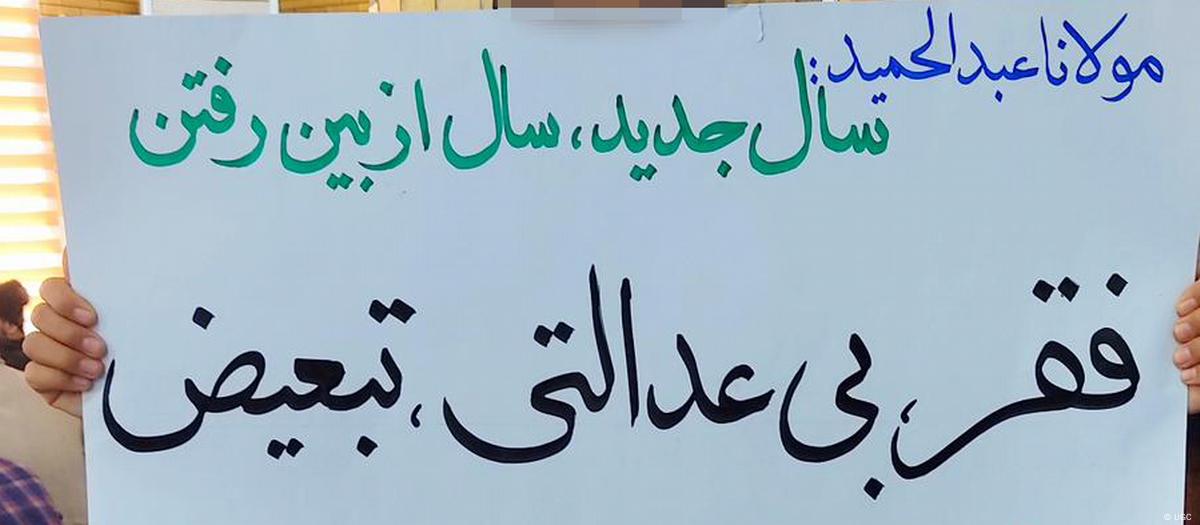 مولانا عبدالحمید:
سال جدید، سال از بین رفتن
فقر، بی عدالتی، تبعیض
© UGC